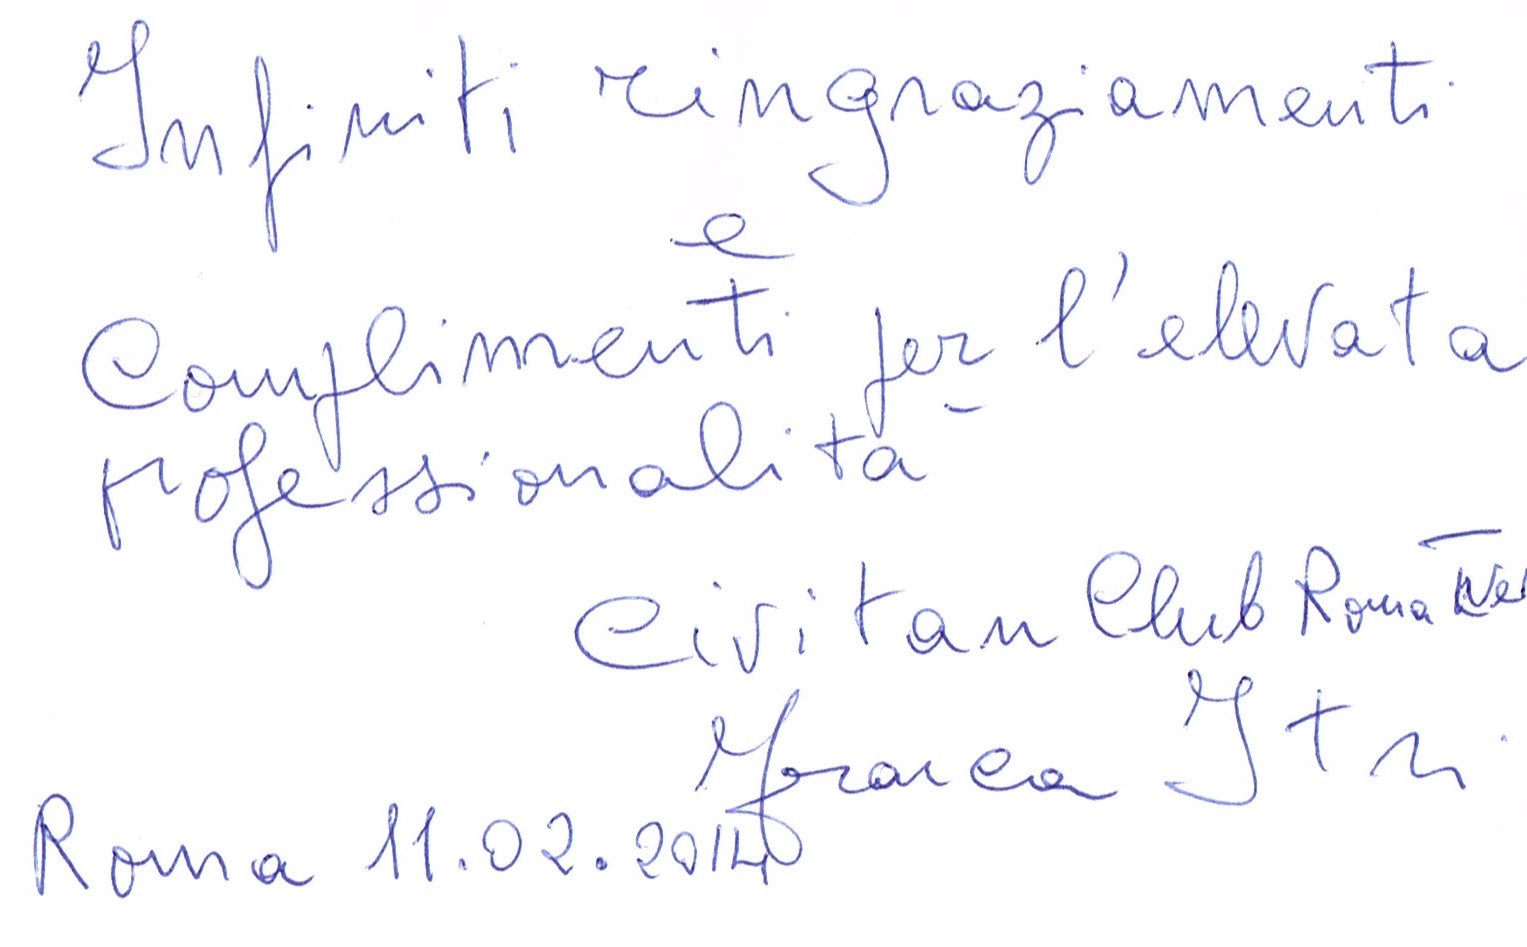 Infiniti ringraziamenti
e
Complimenti per l'elevata
professionalità
Civitan Club Roma
Franca Itri
Roma 11.02.2014